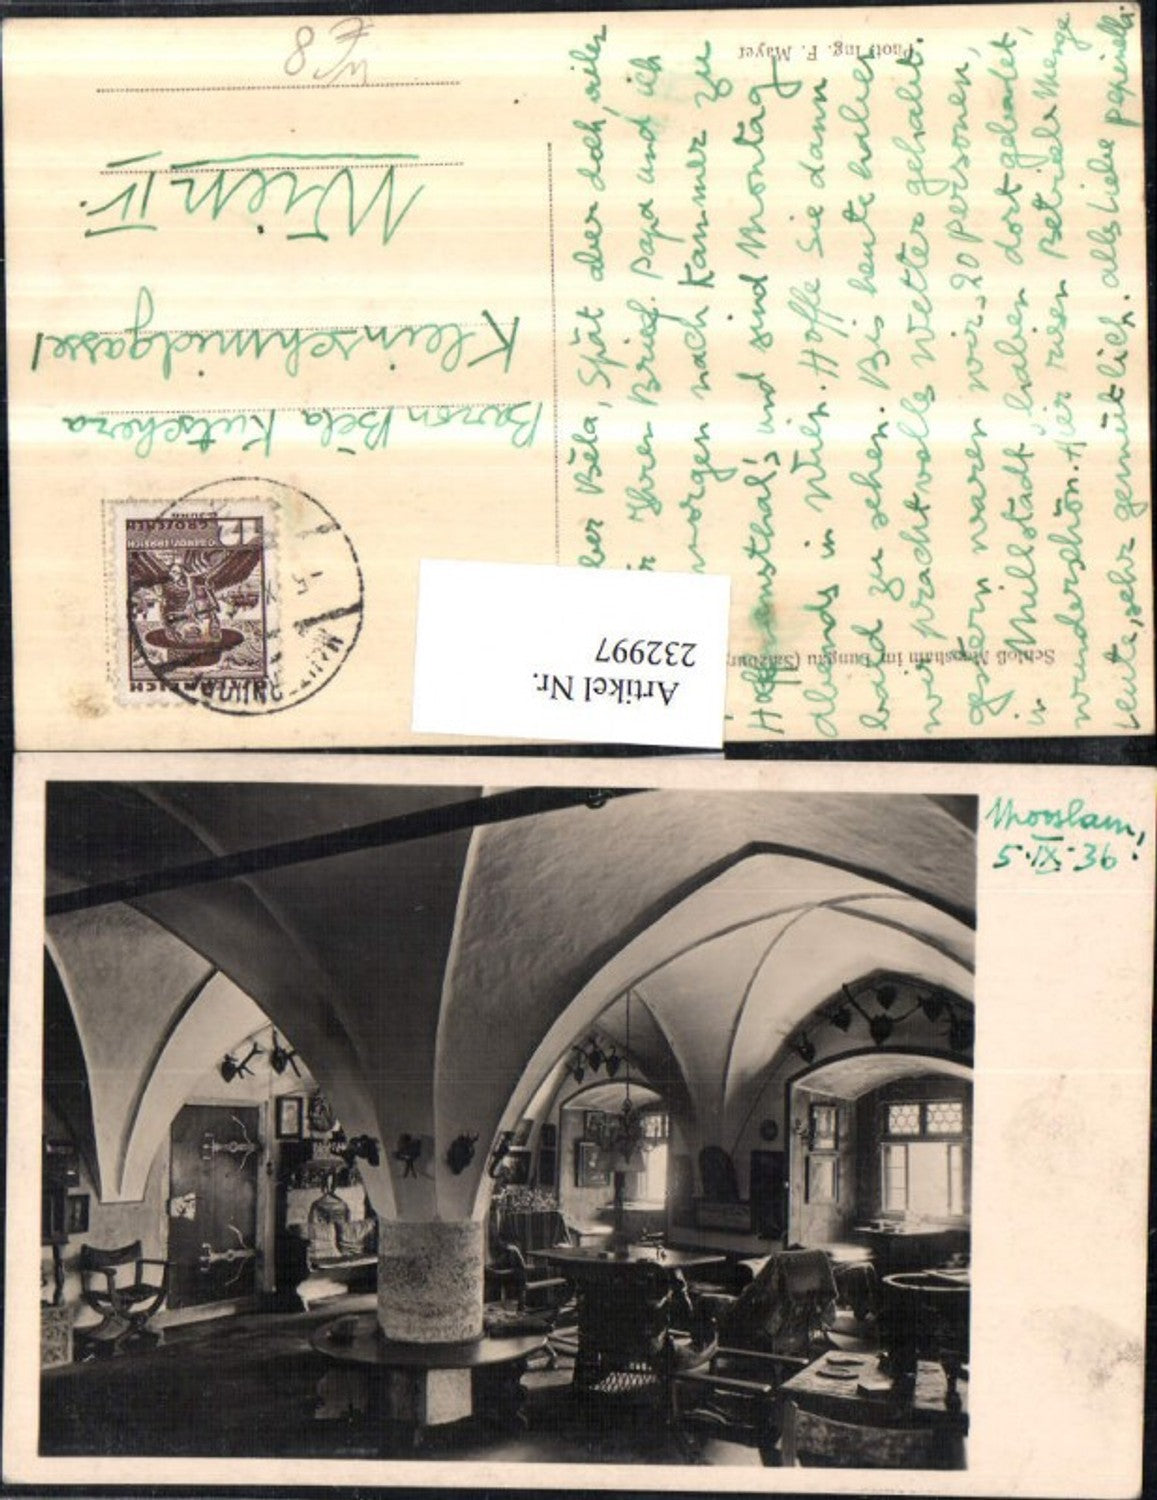 Phot. Ing. F. Mayer
Schloß Moosham im Lungau (Salzburg
Baron Béla Kutschera
Kleinschmidgasse 1
Wien IV.
8
GROSCHEN
Artikel Nr.
232997
ber Béla, Spät aber doch, vielen
Ihren Brief. Papa und ich
morgen nach Kammer zu
Hofmannsthal's und sind Montag
abends in Wien. Hoffe Sie dann
bald zu sehen. Bis heute haben
wir prachtvolles Wetter gehabt.
gestern waren wir, 20 Personen,
in Millstadt u haben dort gebadet,
wunderschön. Hier riesen Betrieb Menge
Leute, sehr gemütlich. alles Liebe
Moosham,
5.IX.36